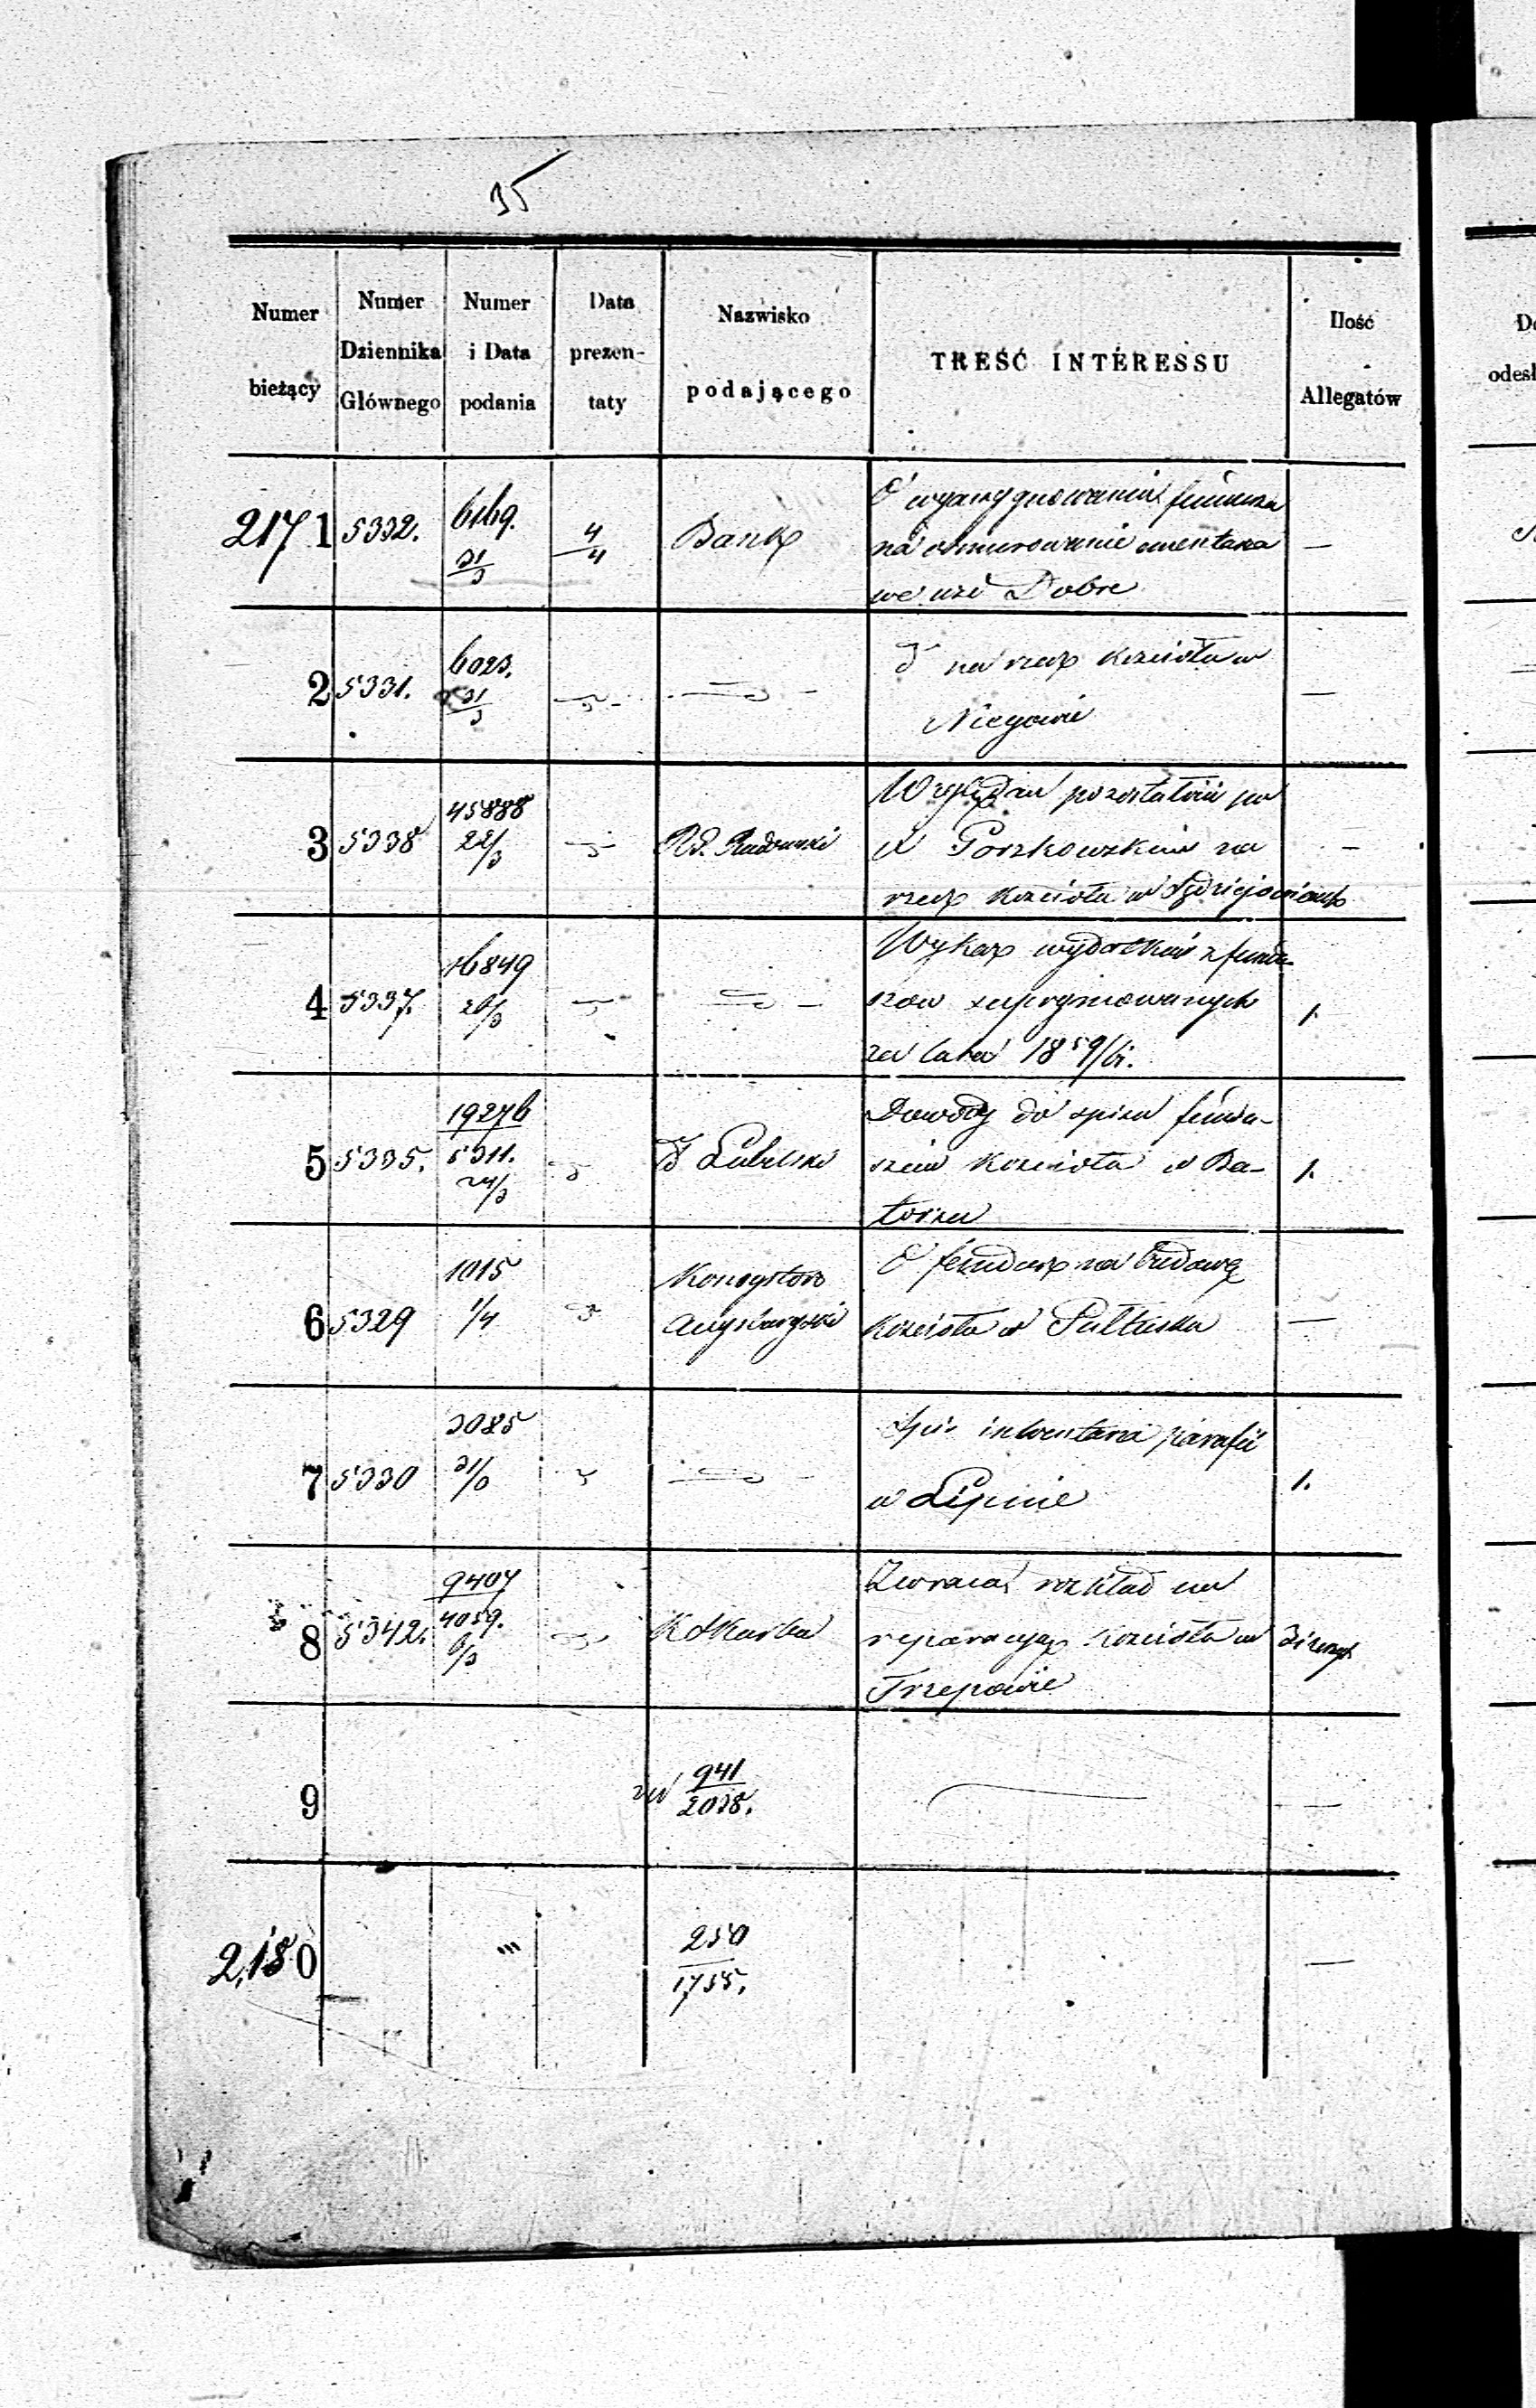 35
Numer bieżący | Numer Dziennika Głównego | Numer i Data podania | Data prezentaty | Nazwisko podającego | TREŚĆ INTERESSU | Ilość Allegatów
2171 | 5332. | 6169. 31/3 | 4/4 | Bank | O wyassygnowanie funduszu
na obmurowanie cmentarza | —
we wsi Dobre
2 | 5331. | 6023. 31/3 | — | — | d na rzecz kościoła w | —
Niegowie
3 | 5338 | 45888 22/3 | — | Rd. Radomski | Względem pozostałości po
w Gorzkowskim na | —
rzecz kościoła w
4 | 5337. | 46849 26/3 | — | — | Wykaz wydatków z fundu-
szów supprymowanych | 1.
za lata 1859/61.
5 | 5335. | 19276 5311. 24/3 | — | d Lubelski | Dowody do spisu fundu-
szów kościoła w Ba- | 1.
torzu
6 | 5329 | 1015 1/4 | — | Konsystorz
Augsburgski | O fundusz na budowę
kościoła w Pułtusku | —
7 | 5330 | 3085 31/3 | — | — | Spis inwentarza parafii
w Lipinie | 1.
8 | 5342. | 9407 4059. 6/3 | — | K Skarbu | Zwraca rozkład na
reparacyą kościoła w
Trzepowie
9 | 941/2038. | —
2,180 | 250/1755. | —